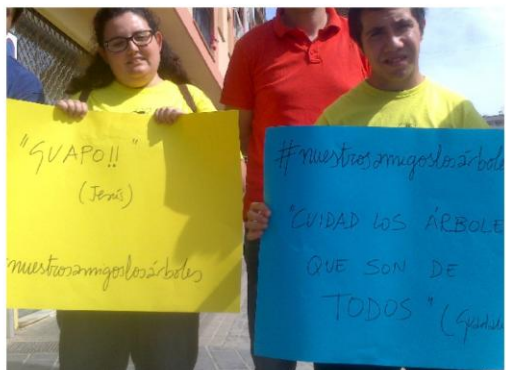 "GUAPO!!"
(Jesús)
#nuestrosamigoslosárboles
#nuestrosamigoslosárboles
"CUIDAD LOS ÁRBOLE
QUE SON DE
TODOS"